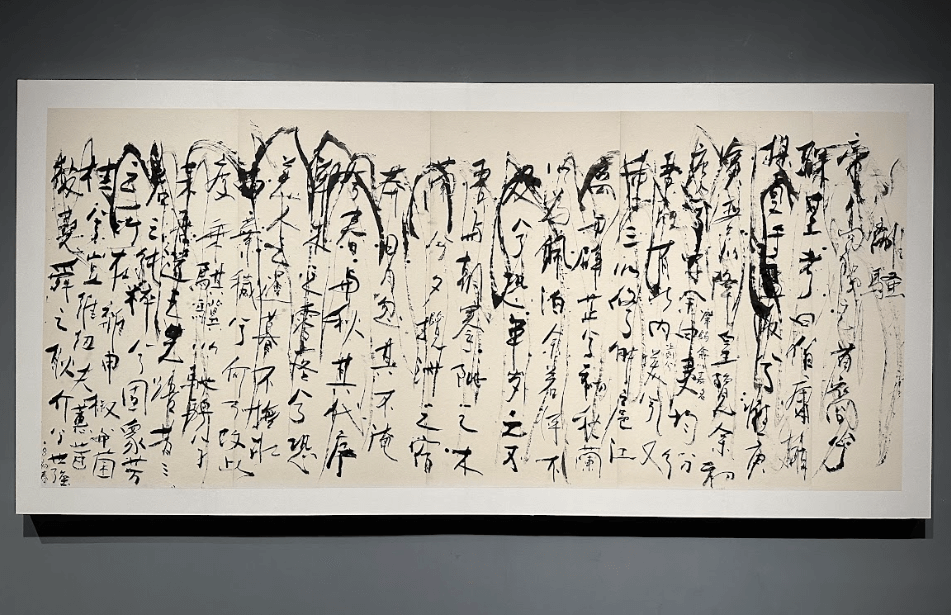 離騷
帝高陽之苗裔兮
朕皇考曰伯庸攝
提貞于孟陬兮惟庚
寅吾以降皇覽余初
度兮肇錫余以嘉名字余曰靈均紛
吾既有此内美兮又
重之以修能扈江
離与辟芷兮紉秋蘭
以為佩汩余若將不
及兮恐年歲之不
吾与朝搴阰之木
蘭兮夕攬洲之宿
莽日月忽其不淹
兮春与秋其代序
惟草木之零落兮恐
美人之遲暮不撫壯
而棄穢兮何不改此
度乘騏驥以馳騁兮
來吾導夫先路昔三
后之純粹兮固眾芳
之所在雜申椒与菌
桂兮豈維紉夫蕙茝
彼堯舜之耿介兮